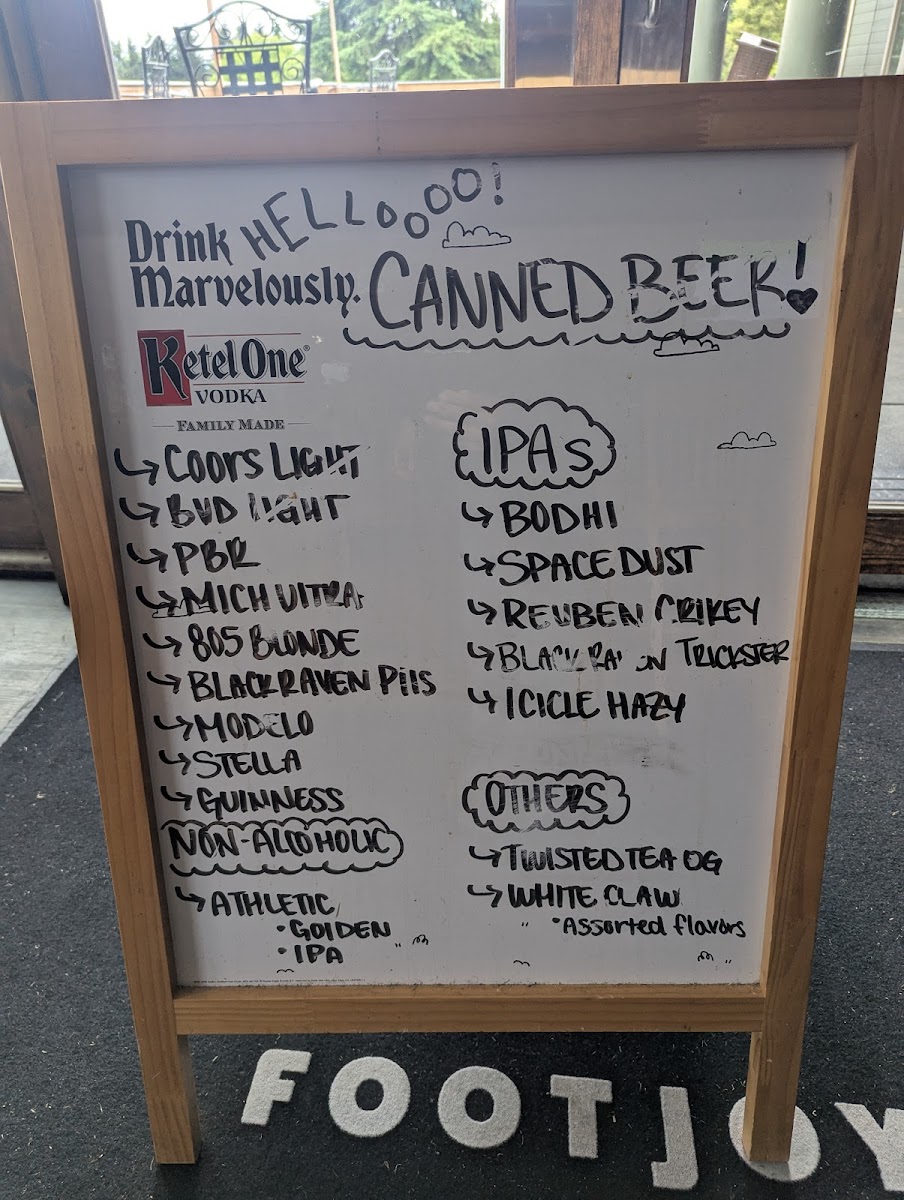 HELLOOOO!
Drink
Marvelously.
CANNED BEER!
Ketel One®
VODKA
FAMILY MADE
COORS LIGHT
BUD LIGHT
PBR
MICH ULTRA
805 BLONDE
BLACK RAVEN PIlS
MODELO
STELLA
GUINNESS
NON-ALCOHOLIC
ATHLETIC
• GOLDEN
• IPA
IPAs
BODHI
SPACE DUST
REUBEN CRIKEY
BLACK RAVEN TRICKSTER
ICICLE HAZY
OTHERS
TWISTED TEA OG
WHITE CLAW
*Assorted flavors
FOOTJOY